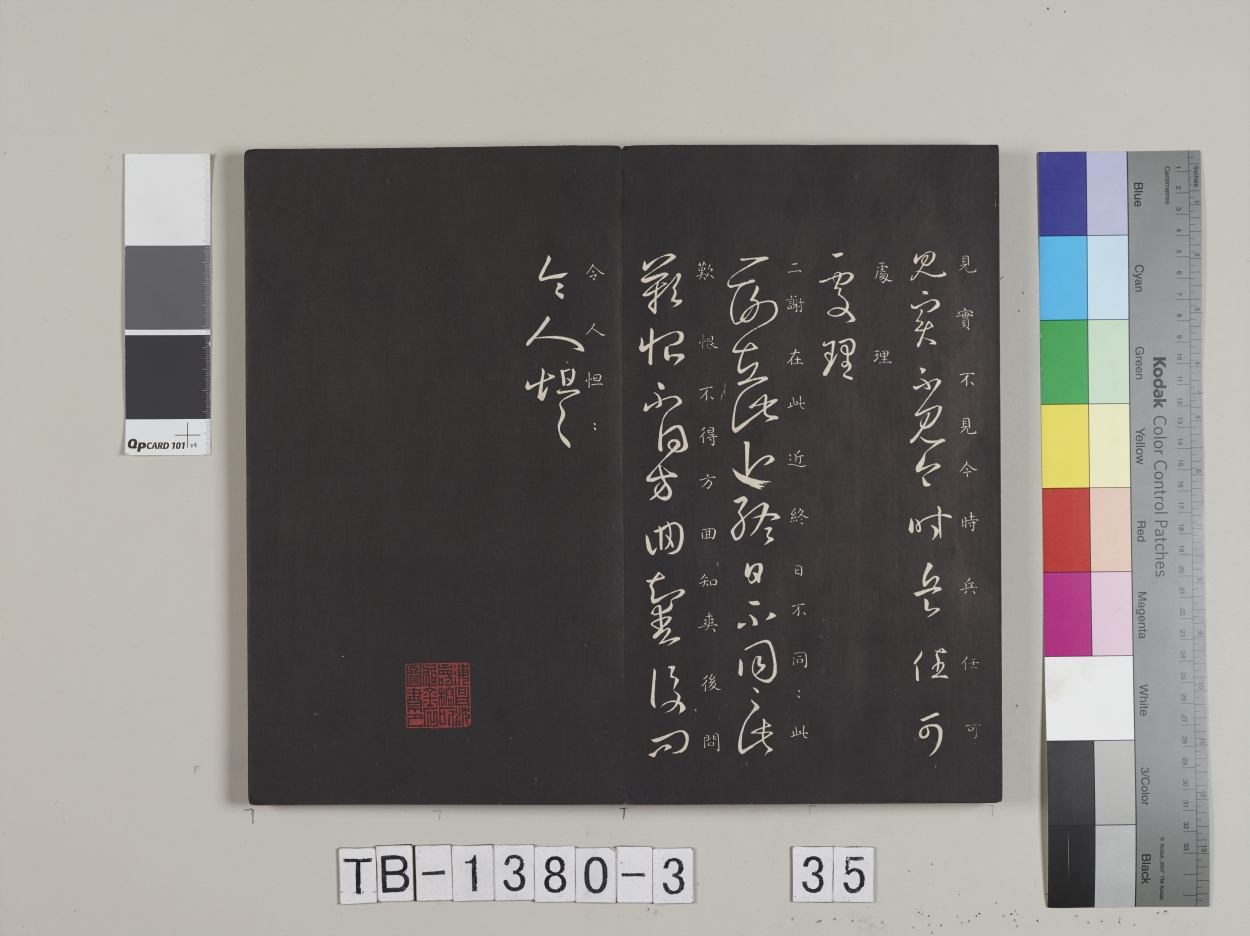 見實不見今時兵任可
處理
二謝在此近終日不同：此
歎恨不得方回知爽後問
令人怛：
QPCARD 101 v4
TB-1380-3 35
Kodak Color Control Patches
Blue
Cyan
Green
Yellow
Red
Magenta
White
3/Color
Black
Inches
Centimetres
© Kodak, 2007 TM: Kodak